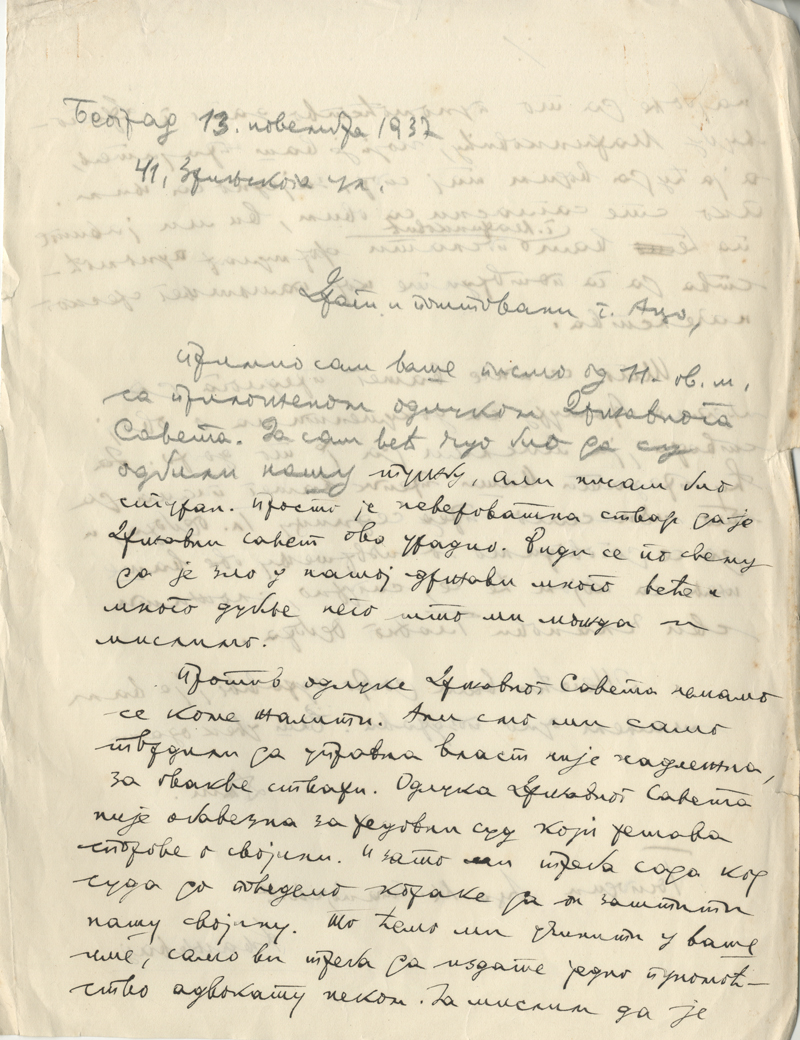 Београд 13. новембра 1937
41, Зрињскога ул.
Драги и поштовани г. Ацо,
Примио сам ваше писмо од 11. ов. м.
са приложеном одлуком Државнога
Савета. Ја сам већ чуо био да су
одбили нашу тужбу, али нисам био
сигуран. Просто је невероватна ствар да је
Државни савет ово урадио. Види се по свему
да је зло у нашој држави много веће и
много дубље него што ми можда и
мислимо.
Против одлуке Државног Савета немамо
се коме жалити. Али смо ми само
тврдили да управна власт није надлежна,
за овакве ствари. Одлука Државног Савета
није обавезна за редовни суд који решава
спорове о својини. И зато ми треба сада код
суда да поведемо кораке да он заштити
нашу својину. То ћемо ми учинити у ваше
име, само ви треба да издате једно пуномоћ-
ство адвокату неком. Ја мислим да је